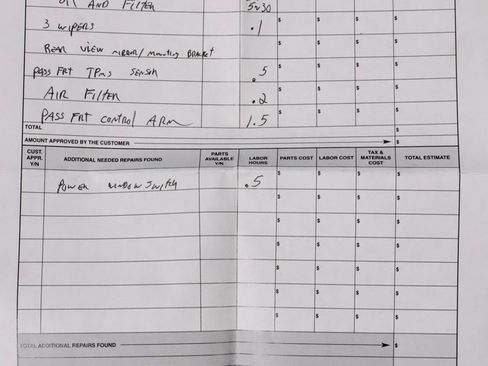 OIL AND FILTER 5w30
3 WIPERS .1 $ $ $ $
REAR VIEW MIRROR/MOUNTING BRACKET $ $ $ $
PASS FRT TPMS SENSOR .5 $ $ $ $
AIR FILTER .2 $ $ $ $
PASS FRT CONTROL ARM 1.5 $ $ $ $
TOTAL $
AMOUNT APPROVED BY THE CUSTOMER $
CUST. APPR. Y/N ADDITIONAL NEEDED REPAIRS FOUND PARTS AVAILABLE Y/N LABOR HOURS PARTS COST LABOR COST TAX & MATERIALS COST TOTAL ESTIMATE
POWER WINDOW SWITCH .5 $ $ $ $
$ $ $ $
$ $ $ $
$ $ $ $
$ $ $ $
$ $ $ $
$ $ $ $
TOTAL ADDITIONAL REPAIRS FOUND $
$